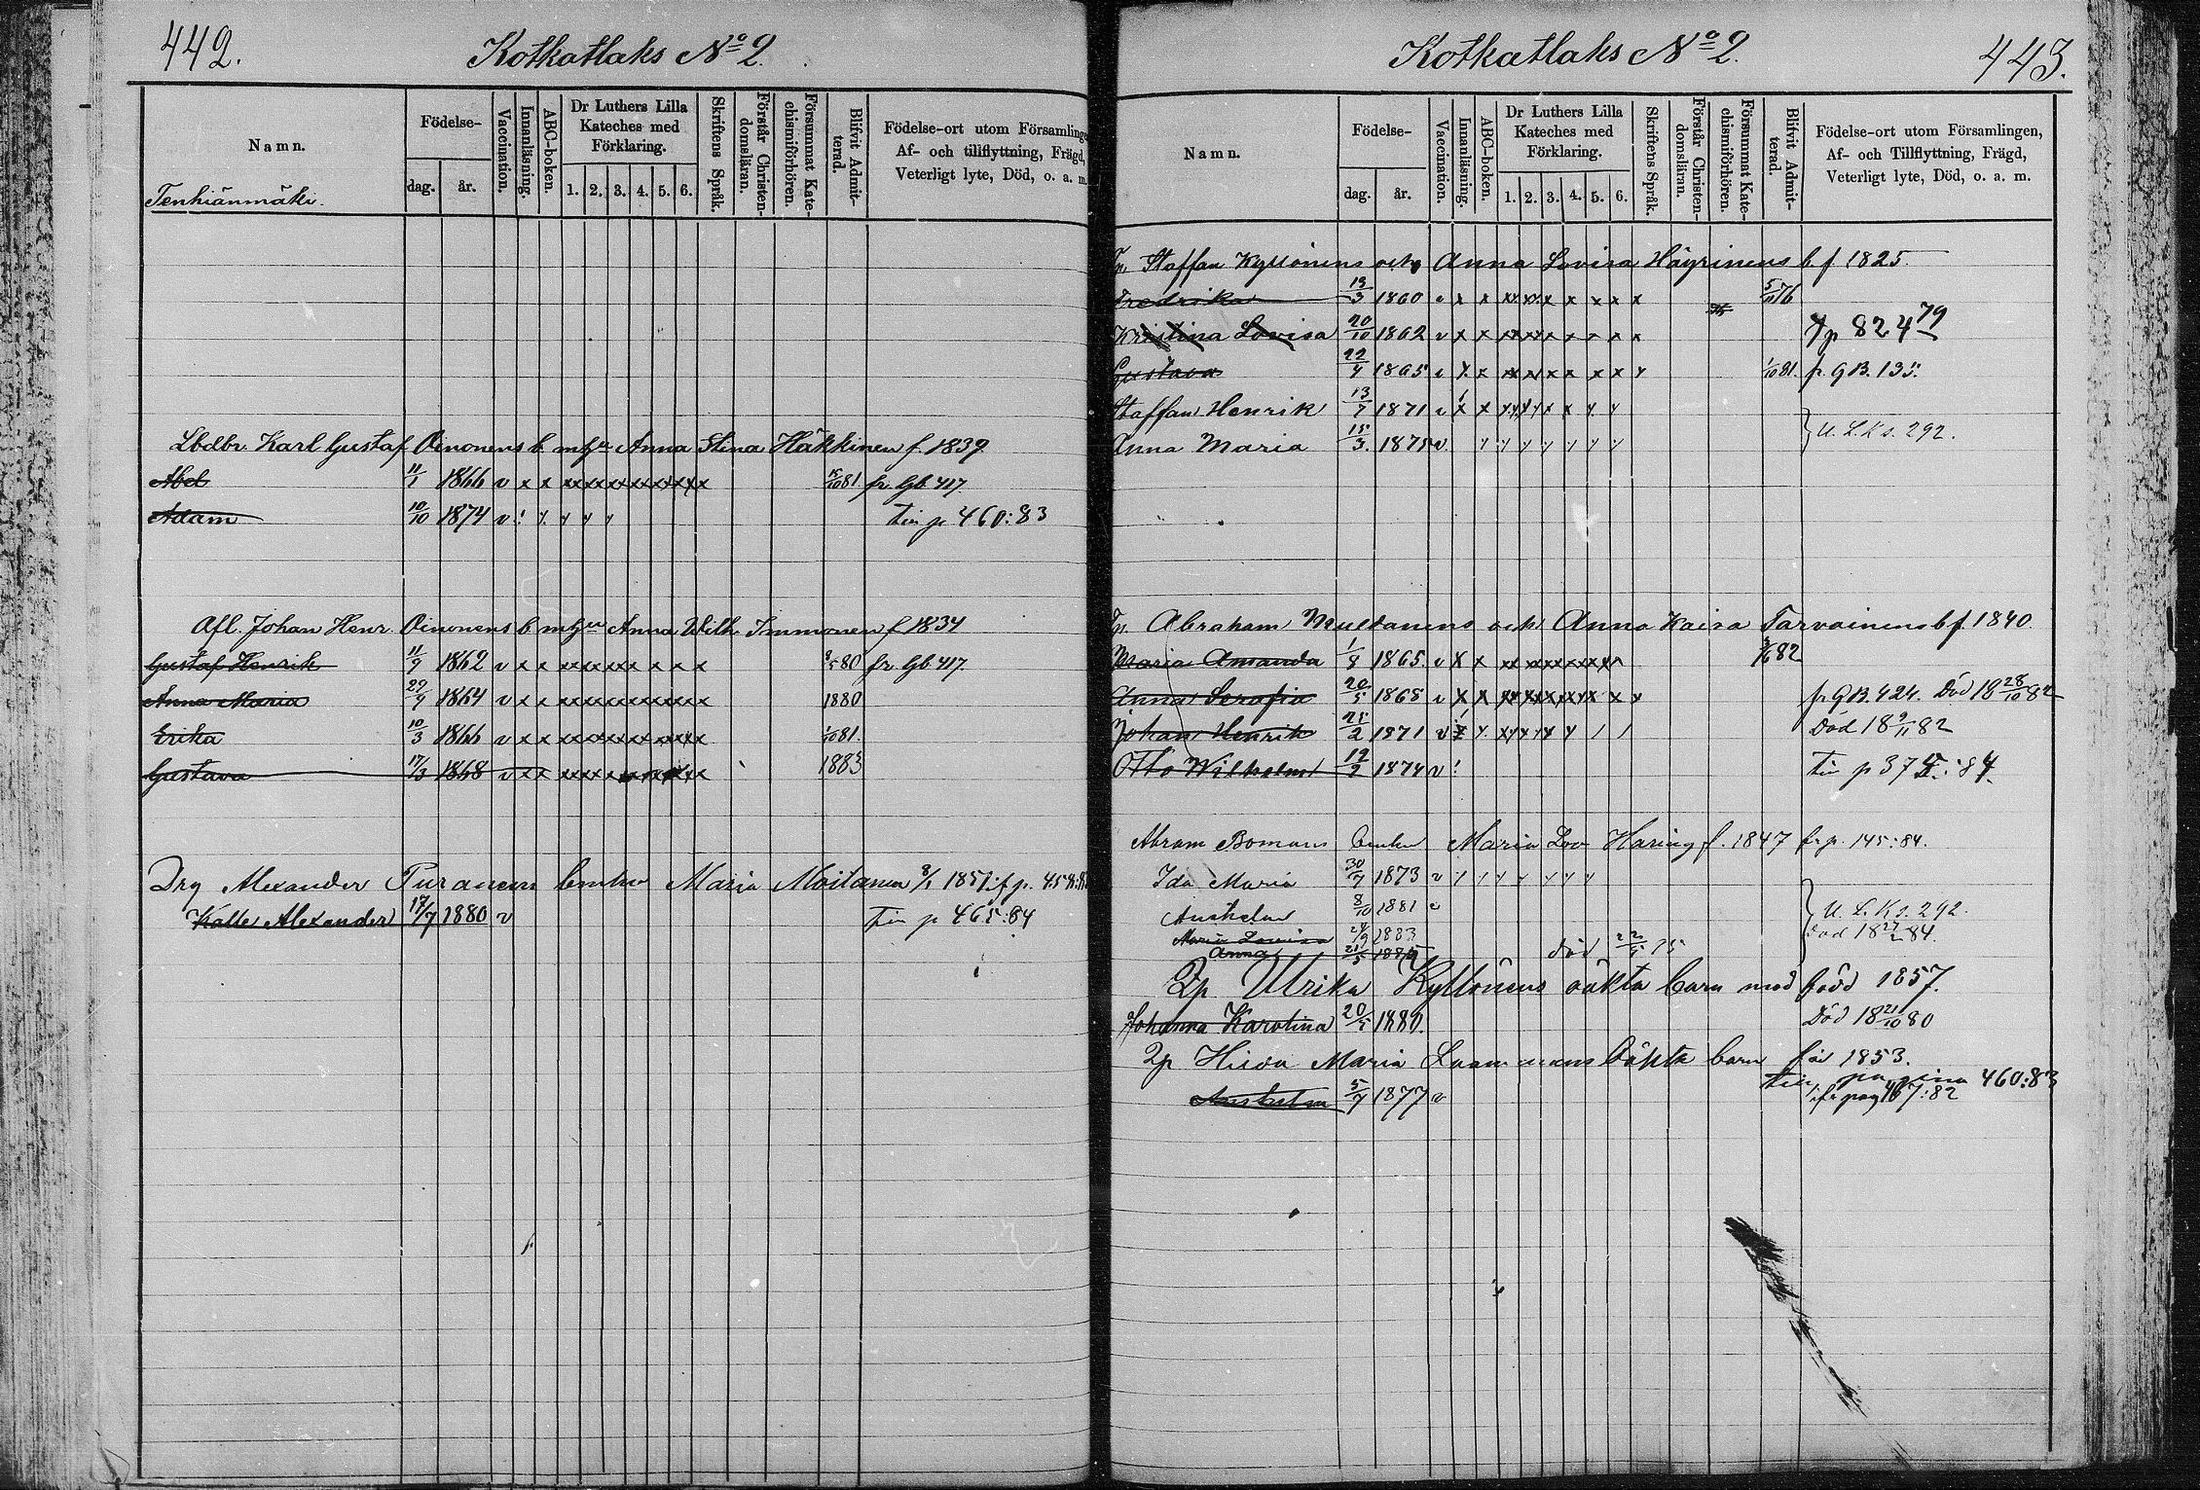 442.
Kotkatlaks No 2.
Namn.
Födelse-
dag.
år.
Vaccination.
Innanläsning.
ABC-boken.
Dr Luthers Lilla Kateches med Förklaring.
1. 2. 3. 4. 5. 6.
Skriftens Språk.
Förstår Christendomsläran.
Försummat Katechismiförhören.
Blifvit Admitterad.
Födelse-ort utom Församlinge
Af- och tillflyttning, Frägd,
Veterligt lyte, Död, o. a. m.
Tenhiänmäki.
Lbdbr. Karl Gustaf Oinonens b. m hu Anna Stina Häkkinen f. 1839
Abel 11/1 1866 v x x xxxxxxxxxxxx 15/10 81 fr. Gb. 417.
Adam 10/10 1874 v ! tin p 460:83
Afl. Johan Henr. Oinonens b m hu Anna Wilh. Immonen f 1834
Gustaf Henrik 11/9 1862 v x x x x x x x x x 80 fr. Gb. 417.
Anna Maria 29/9 1864 v x x 1880
Erika 10/3 1866 v x x 1/10 81.
Gustava 17/3 1868 v x x 1883
Drg Alexander Puranens Maria Moilanen 1851
Kalle Alexander 17/7 1880 v tin p 465:84
443.
Kotkatlaks No 2.
Namn.
Födelse-
dag.
år.
Vaccination.
Innanläsning.
ABC-boken.
Dr Luthers Lilla Kateches med Förklaring.
1. 2. 3. 4. 5. 6.
Skriftens Språk.
Förstår Christendomsläran.
Försummat Katechismiförhören.
Blifvit Admitterad.
Födelse-ort utom Församlingen,
Af- och Tillflyttning, Frägd,
Veterligt lyte, Död, o. a. m.
Staffan Kyllönens och Anna Lovisa Häyrinens b f 1825
Fredrika 13/3 1860 x x 5/11 76
Kristina Lovisa 20/10 1862 v x x 824 79
Gustava 22/4 1865 x x 1/10 81. p. GB. 135.
Staffan Henrik 13/7 1871 x x
Anna Maria 15/3 1875 v. U. L. Ks. 292.
Abraham Multanens och Anna Kaisa Tarvainens b f. 1840
Maria Amanda 1/8 1865 v x x 82
Anna Serafia 20/5 1868 x x p. GB. 424. Död 18 28/10 82
Johan Henrik 21/2 1871 v Död 18 9/11 82
Otto Wilhelm 12/9 1874 v !
Abram Bomans Maria Lov Haring f. 1847 fr p. 145:84.
Ida Maria 30/7 1873 v
Anshelm 8/10 1881 U. L. Ks. 292.
Maria Lovisa 24/9 1883 död 18 27/2 84.
Anna 21/5 död
Ulrika Kyllönens oäkta barn mod född 1857.
Johanna Karolina 20/5 1880. Död 18 21/10 80
Maria oäkta barn 1853.
tin pagina 460:83
Anshelm 5/7 1877 v pag 167:82